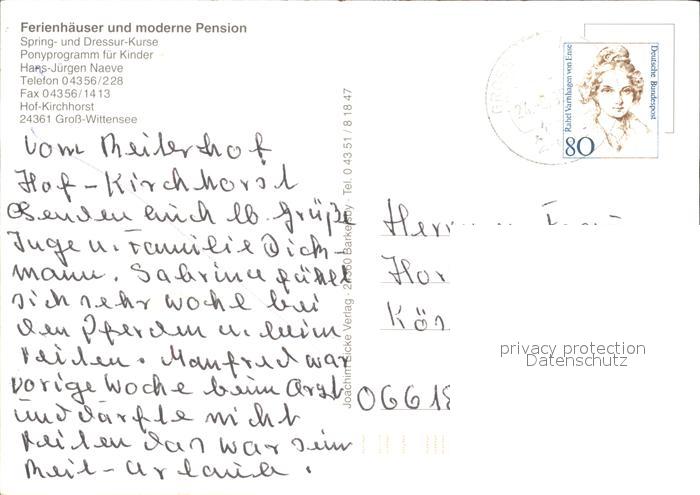 Ferienhäuser und moderne Pension
Spring- und Dressur-Kurse
Ponyprogramm für Kinder
Hans-Jürgen Naeve
Telefon 04356/228
Fax 04356/1413
Hof-Kirchhorst
24361 Groß-Wittensee
vom Reiterhof
Hof-Kirchhorst
Senden Euch lb. Grüße
Inge u. Familie Dich-
mann. Sabrina fühlt
sich sehr wohl bei
den Pferden u. beim
reiten. Manfred war
vorige Woche beim Arzt
und dürfte nicht
reiten das war sein
Reit-Urlaub.
Joachim Eicke Verlag · 24360 Barkelsby · Tel. 0 43 51 / 8 18 47
Rahel Varnhagen von Ense
Deutsche Bundespost
80
Herrn u.
Hor
Kös
0661
privacy protection
Datenschutz